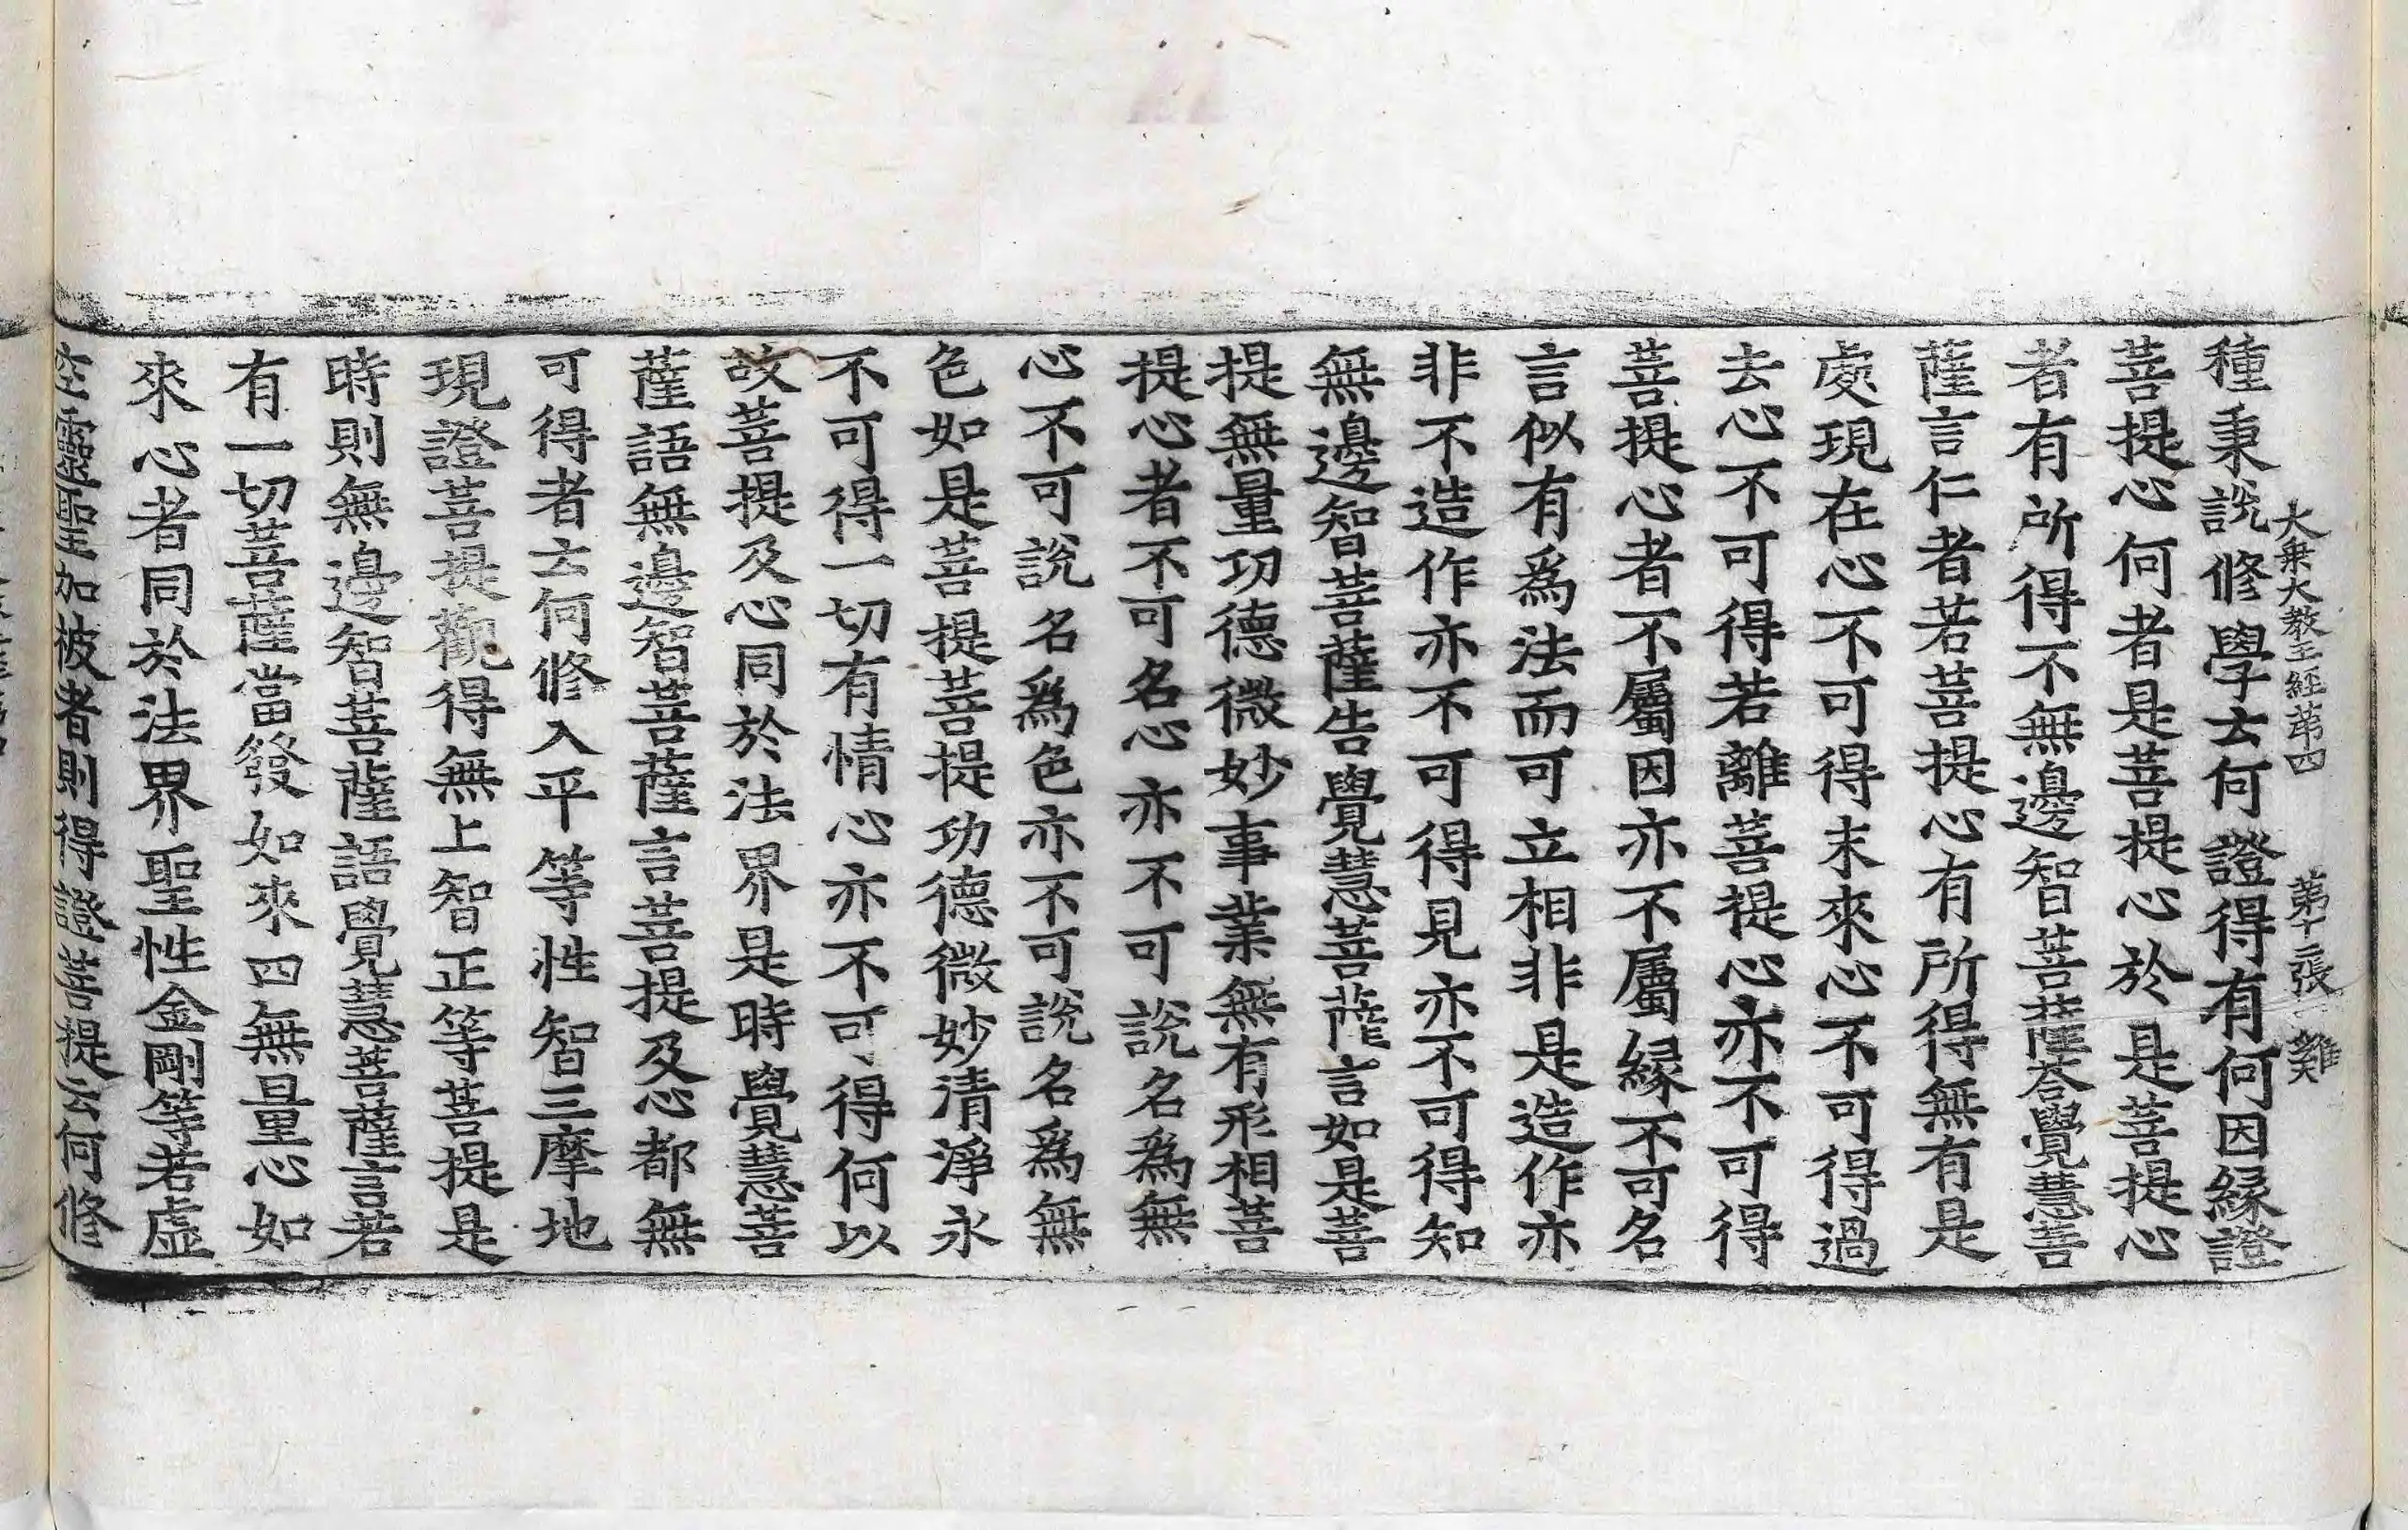 大乗大教王經苐四 苐十二張 難
種秉說修學云何證得有何因縁證
菩提心何者是菩提心於是菩提心
者有所得不無邊智菩薩荅覺慧菩
薩言仁者若菩提心有所得無有是
處現在心不可得末來心不可得過
去心不可得若離菩提心亦不可得
菩提心者不屬因亦不屬縁不可名
言似有爲法而可立相非是造作亦
非不造作亦不可得見亦不可得知
無邊智菩薩告覺慧菩薩言如是菩
提無量功德微妙事業無有形相菩
提心者不可名心亦不可說名爲無
心不可說名爲色亦不可說名爲無
色如是菩提菩提功德微妙清淨永
不可得一切有情心亦不可得何以
故菩提及心同於法界是時覺慧菩
薩語無邊智菩薩言菩提及心都無
可得者云何修入平等性智三摩地
現證菩提觀得無上智正等菩提是
時則無邊智菩薩語覺慧菩薩言若
有一切菩薩當發如來四無量心如
來心者同於法界聖性金剛等若虛
空靈聖加被者則得證菩提云何修